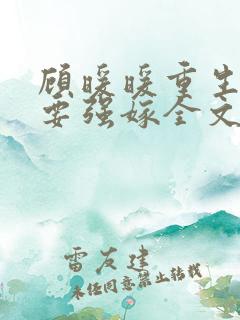 顾暖暖重生
要强嫁全文
雷友建
未经同意禁止转载